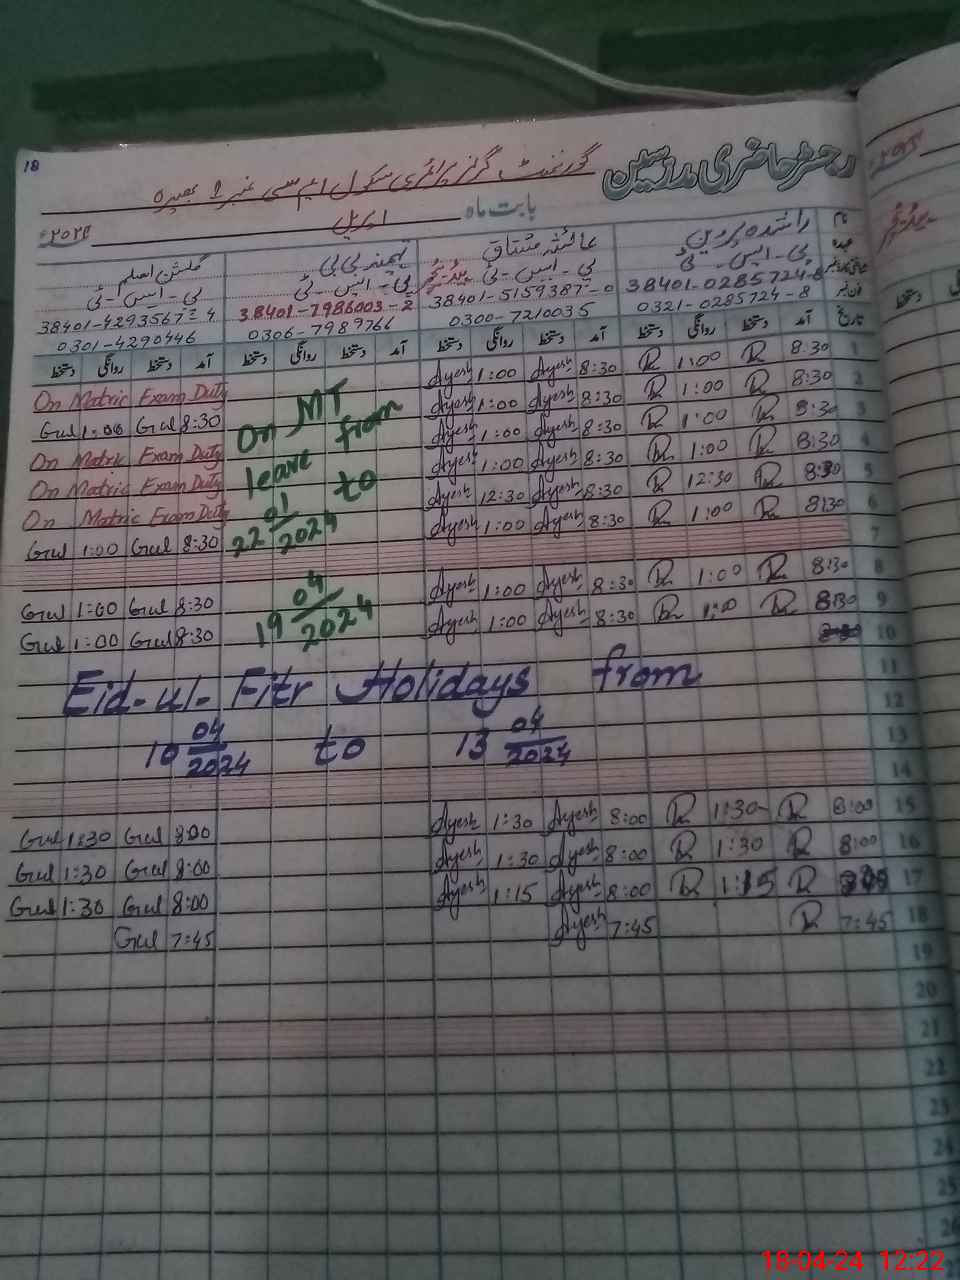 18
رجسٹر حاضری مدرسین
گورنمنٹ گرلز پرائمری سکول ایم سی نمبر 1 بھیرہ
بابت ماہ اپریل ۲۰۲۴ء
نام راشدہ پروین عائشہ مشتاق تہمینہ بی بی گلشن اسلم
عہدہ پی-ایس-ٹی پی-ایس-ٹی ہیڈ ٹیچر پی-ایس-ٹی پی-ایس-ٹی
38401-0285724-8 38401-5159387-0 38401-7986003-2 38401-4293567-4
0321-0285724-8 0300-7210035 0306-7989766 0301-4290446
تاریخ آمد دستخط روانگی دستخط آمد دستخط روانگی دستخط آمد دستخط روانگی دستخط آمد دستخط روانگی دستخط
On Matric Exam Duty Ayesh 1:00 Ayesh 8:30 R 1:00 R 8:30 1
Gul 1:00 Gul 8:30 Ayesh 1:00 Ayesh 8:30 R 1:00 R 8:30 2
On Matric Exam Duty Ayesh 1:00 Ayesh 8:30 R 1:00 R 8:30 3
On Matric Exam Duty Ayesh 1:00 Ayesh 8:30 R 1:00 R 8:30 4
On Matric Exam Duty Ayesh 12:30 Ayesh 8:30 R 12:30 R 8:30 5
Gul 1:00 Gul 8:30 Ayesh 1:00 Ayesh 8:30 R 1:00 R 8:30 6
On MT
leave from
22 01/2024 to
19 04/2024
7
Gul 1:00 Gul 8:30 Ayesh 1:00 Ayesh 8:30 R 1:00 R 8:30 8
Gul 1:00 Gul 8:30 Ayesh 1:00 Ayesh 8:30 R 1:00 R 8:30 9
10
Eid-ul-Fitr Holidays from 11
12
10 04/2024 to 13 04/2024 13
14
Gul 1:30 Gul 8:00 Ayesh 1:30 Ayesh 8:00 R 1:30 R 8:00 15
Gul 1:30 Gul 8:00 Ayesh 1:30 Ayesh 8:00 R 1:30 R 8:00 16
Gul 1:30 Gul 8:00 Ayesh 1:15 Ayesh 8:00 R 1:15 R 17
Gul 7:45 Ayesh 7:45 R 7:45 18
19
20
21
22
23
24
25
26
18-04-24 12:22